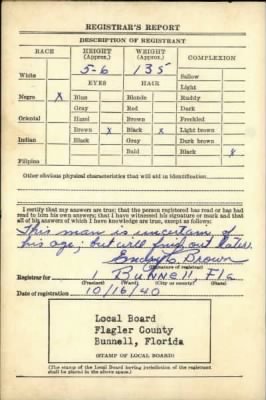 REGISTRAR'S REPORT
DESCRIPTION OF REGISTRANT
RACE HEIGHT (Approx.) WEIGHT (Approx.) COMPLEXION
White 5-6 135 Sallow
Light
EYES HAIR
Negro x Blue Blonde Ruddy
Gray Red Dark
Oriental Hazel Brown Freckled
Brown x Black x Light brown
Indian Black Gray Dark brown
Bald Black x
Filipino
Other obvious physical characteristics that will aid in identification
I certify that my answers are true; that the person registered has read or has had
read to him his own answers; that I have witnessed his signature or mark and that
all of his answers of which I have knowledge are true, except as follows:
This man is uncertain of
his age; but will find out later.
Brown
(Signature of registrar)
Registrar for 1 Bunnell, Fla
(Precinct) (Ward) (City or county) (State)
Date of registration 10/16/40
Local Board
Flagler County
Bunnell, Florida
(STAMP OF LOCAL BOARD)
(The stamp of the Local Board having jurisdiction of the registrant
shall be placed in the above space.)